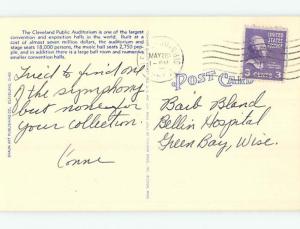 The Cleveland Public Auditorium is one of the largest
convention and exposition halls in the world. Built at a
cost of almost seven million dollars, the auditorium and
stage seats 18,000 persons, the music hall seats 2,750 peo-
ple, and in addition there is a large ball room and numerous
smaller convention halls.
Tried to find one
of the symphony
but none for
your collection.
Connie
POST CARD
3 CENTS 3
MAY
Barb Bland
Bellin Hospital
Green Bay, Wisc.